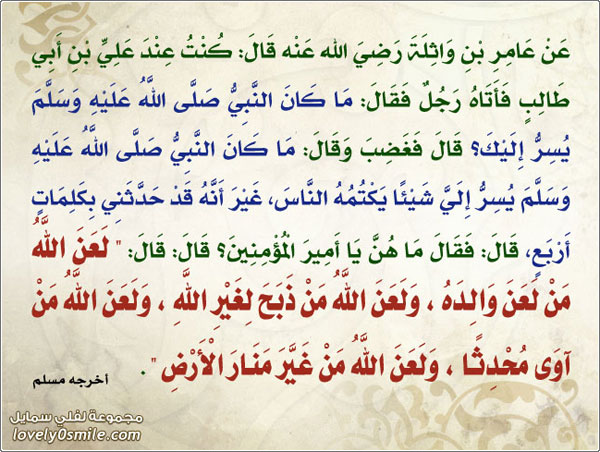 عَنْ عَامِرِ بْنِ وَاثِلَةَ رَضِيَ الله عَنْه قَالَ: كُنْتُ عِنْدَ عَلِيِّ بْنِ أَبِي
طَالِبٍ فَأَتَاهُ رَجُلٌ فَقالَ: مَا كَانَ النَّبِيُّ صَلَّى اللَّهُ عَلَيْهِ وَسَلَّمَ
يُسِرُّ إِلَيْكَ؟ قَالَ فَغَضِبَ وَقَالَ: مَا كَانَ النَّبِيُّ صَلَّى اللَّهُ عَلَيْهِ
وَسَلَّمَ يُسِرُّ إِلَيَّ شَيْئًا يَكْتُمُهُ النَّاسَ، غَيْرَ أَنَّهُ قَدْ حَدَّثَنِي بِكَلِمَاتٍ
أَرْبَعٍ، قَالَ: فَقَالَ مَا هُنَّ يَا أَمِيرَ الْمُؤْمِنِينَ؟ قَالَ: قَالَ: " لَعَنَ اللَّهُ
مَنْ لَعَنَ وَالِدَهُ ، وَلَعَنَ اللَّهُ مَنْ ذَبَحَ لِغَيْرِ اللَّهِ ، وَلَعَنَ اللَّهُ مَنْ
آوَى مُحْدِثًا ، وَلَعَنَ اللَّهُ مَنْ غَيَّرَ مَنَارَ الْأَرْضِ " .
أخرجه مسلم
مجموعة لفلي سمايل
lovely0smile.com